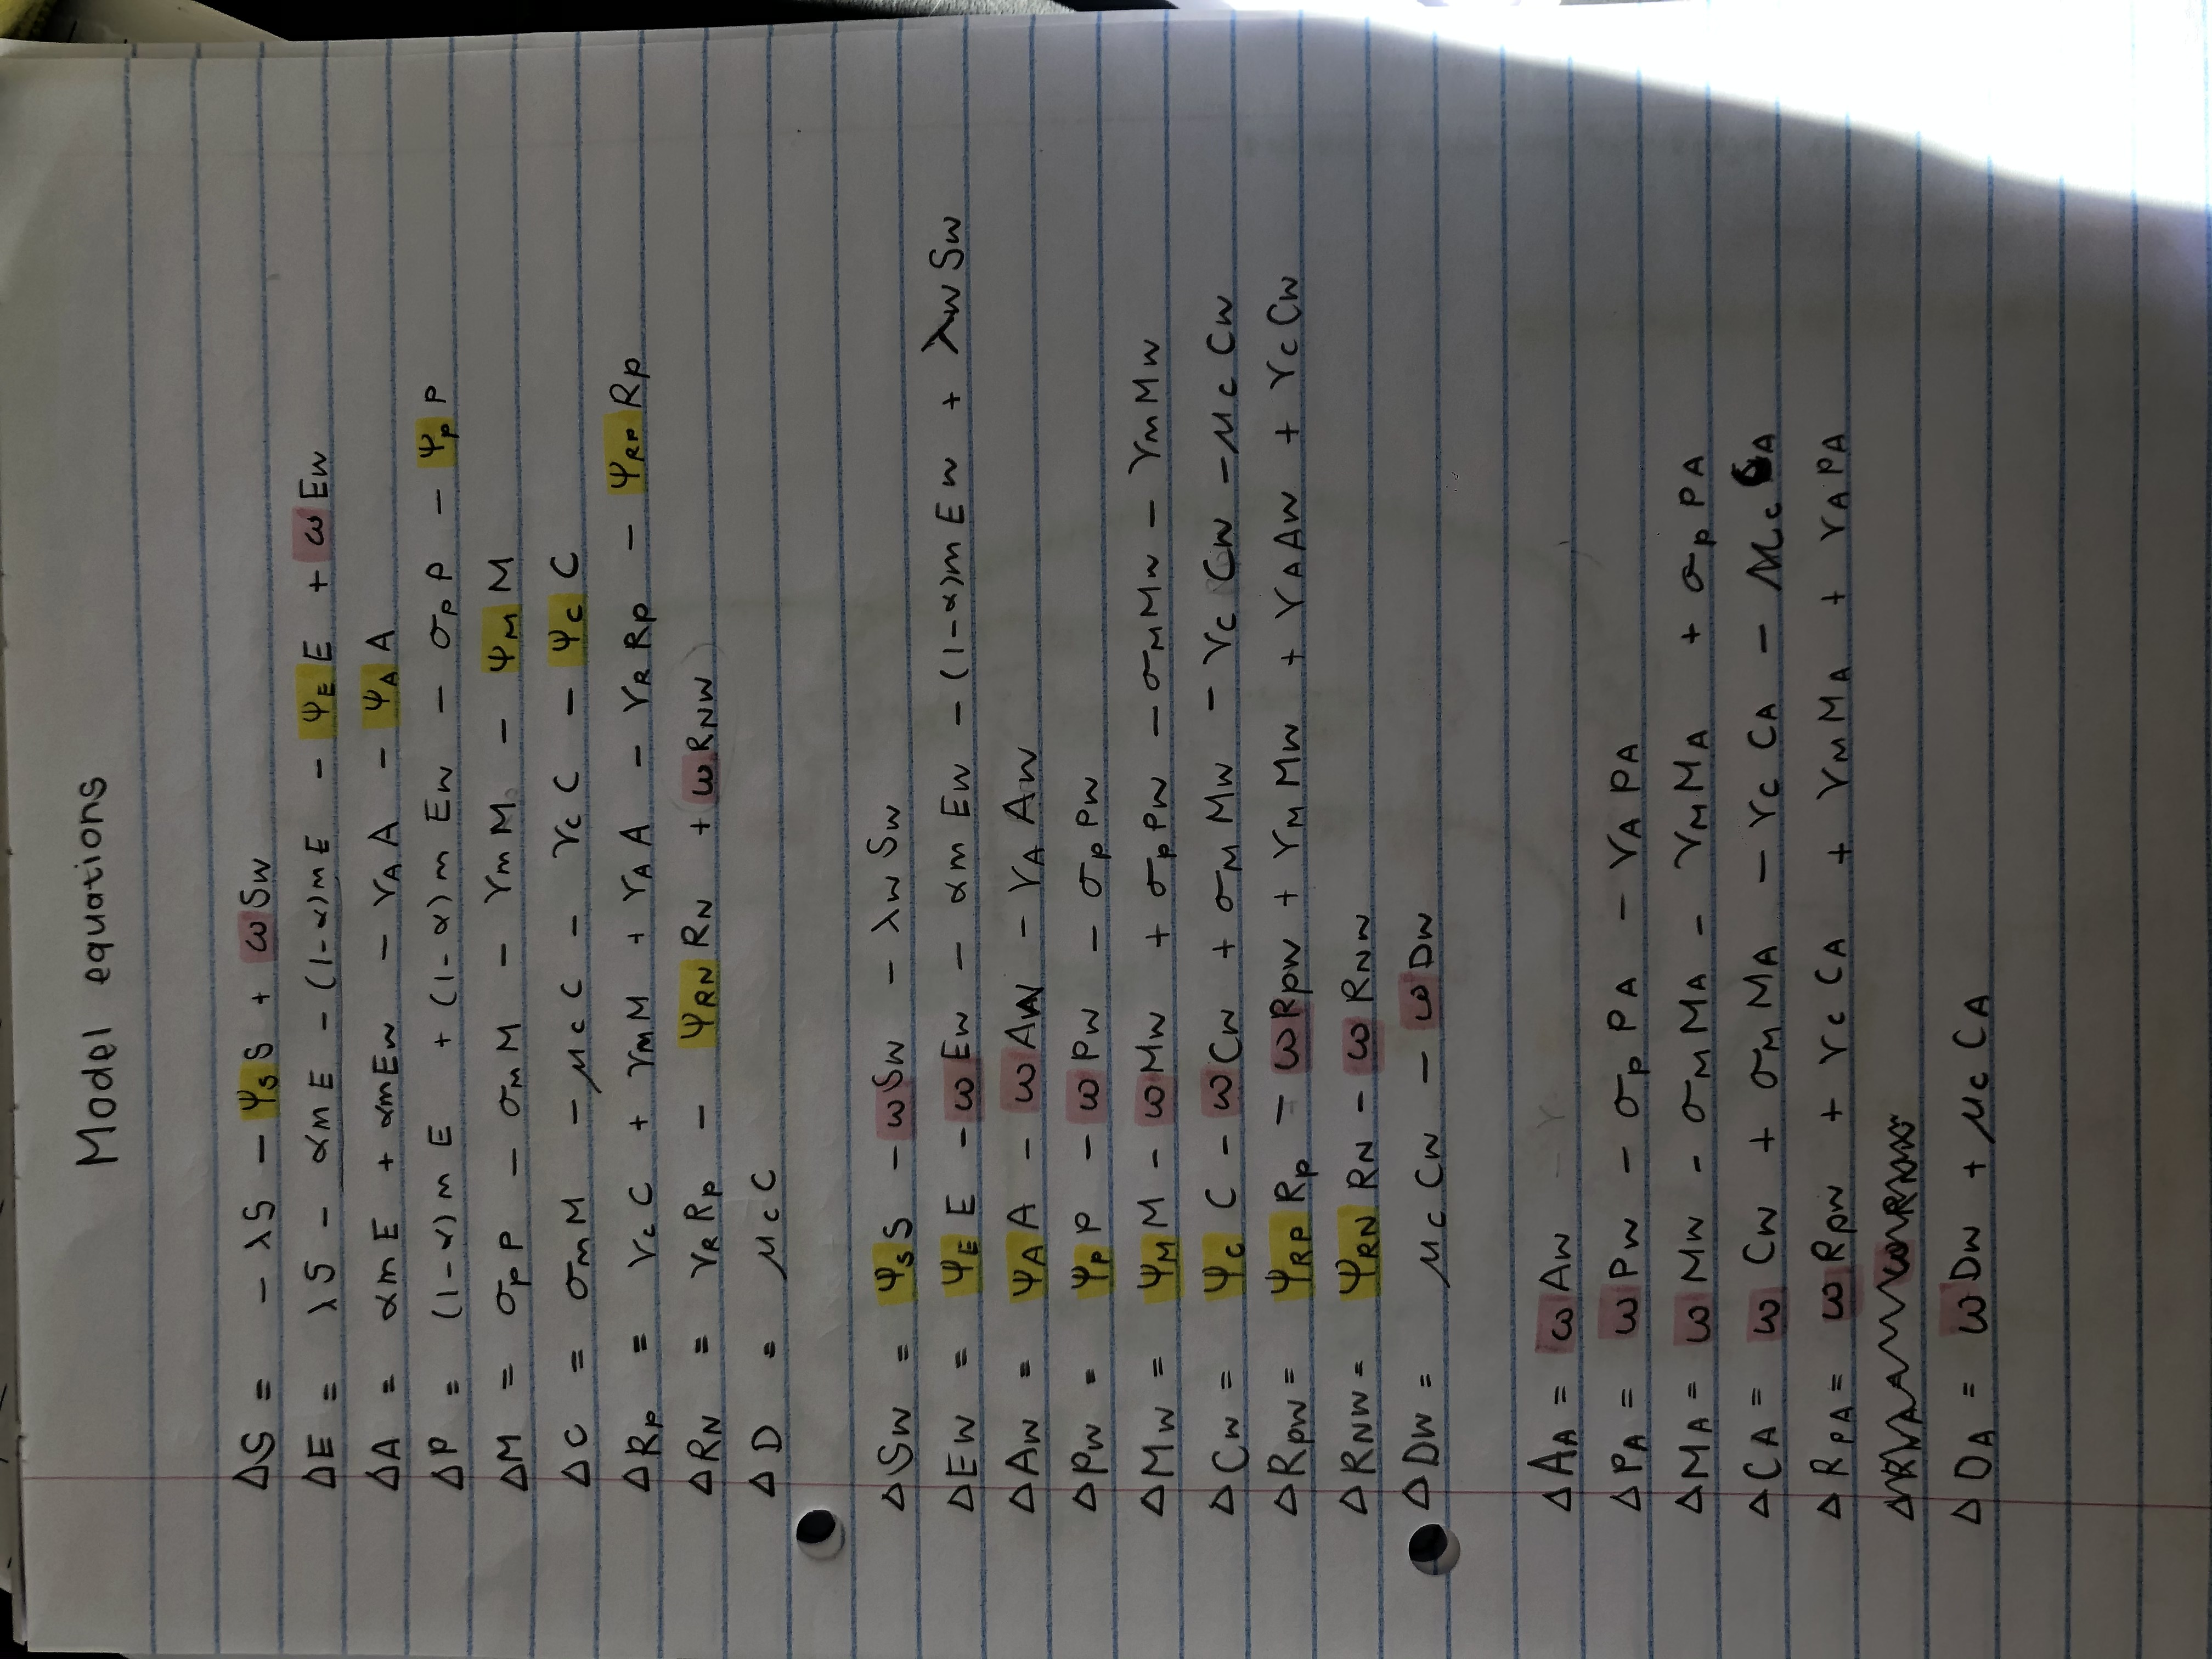 Model equations
ΔS = - λS - ψ_S S + ω S_W
ΔE = λS - αmE - (1-α)mE - ψ_E E + ω E_W
ΔA = αmE + αmE_W - γ_A A - ψ_A A
ΔP = (1-α)mE + (1-α)mE_W - σ_P P - ψ_P P
ΔM = σ_P P - σ_M M - γ_M M - ψ_M M
ΔC = σ_M M - μ_C C - γ_C C - ψ_C C
ΔR_P = γ_C C + γ_M M + γ_A A - γ_R R_P - ψ_RP R_P
ΔR_N = γ_R R_P - ψ_RN R_N + ω R_NW
ΔD = μ_C C
ΔS_W = ψ_S S - ω S_W - λ_W S_W
ΔE_W = ψ_E E - ω E_W - αm E_W - (1-α)m E_W + λ_W S_W
ΔA_W = ψ_A A - ω A_W - γ_A A_W
ΔP_W = ψ_P P - ω P_W - σ_P P_W
ΔM_W = ψ_M M - ω M_W + σ_P P_W - σ_M M_W - γ_M M_W
ΔC_W = ψ_C C - ω C_W + σ_M M_W - γ_C C_W - μ_C C_W
ΔR_PW = ψ_RP R_P - ω R_PW + γ_M M_W + γ_A A_W + γ_C C_W
ΔR_NW = ψ_RN R_N - ω R_NW
ΔD_W = μ_C C_W - ω D_W
ΔA_A = ω A_W
ΔP_A = ω P_W - σ_P P_A - γ_A P_A
ΔM_A = ω M_W - σ_M M_A - γ_M M_A + σ_P P_A
ΔC_A = ω C_W + σ_M M_A - γ_C C_A - μ_C C_A
ΔR_PA = ω R_PW + γ_C C_A + γ_M M_A + γ_A P_A
ΔD_A = ω D_W + μ_C C_A